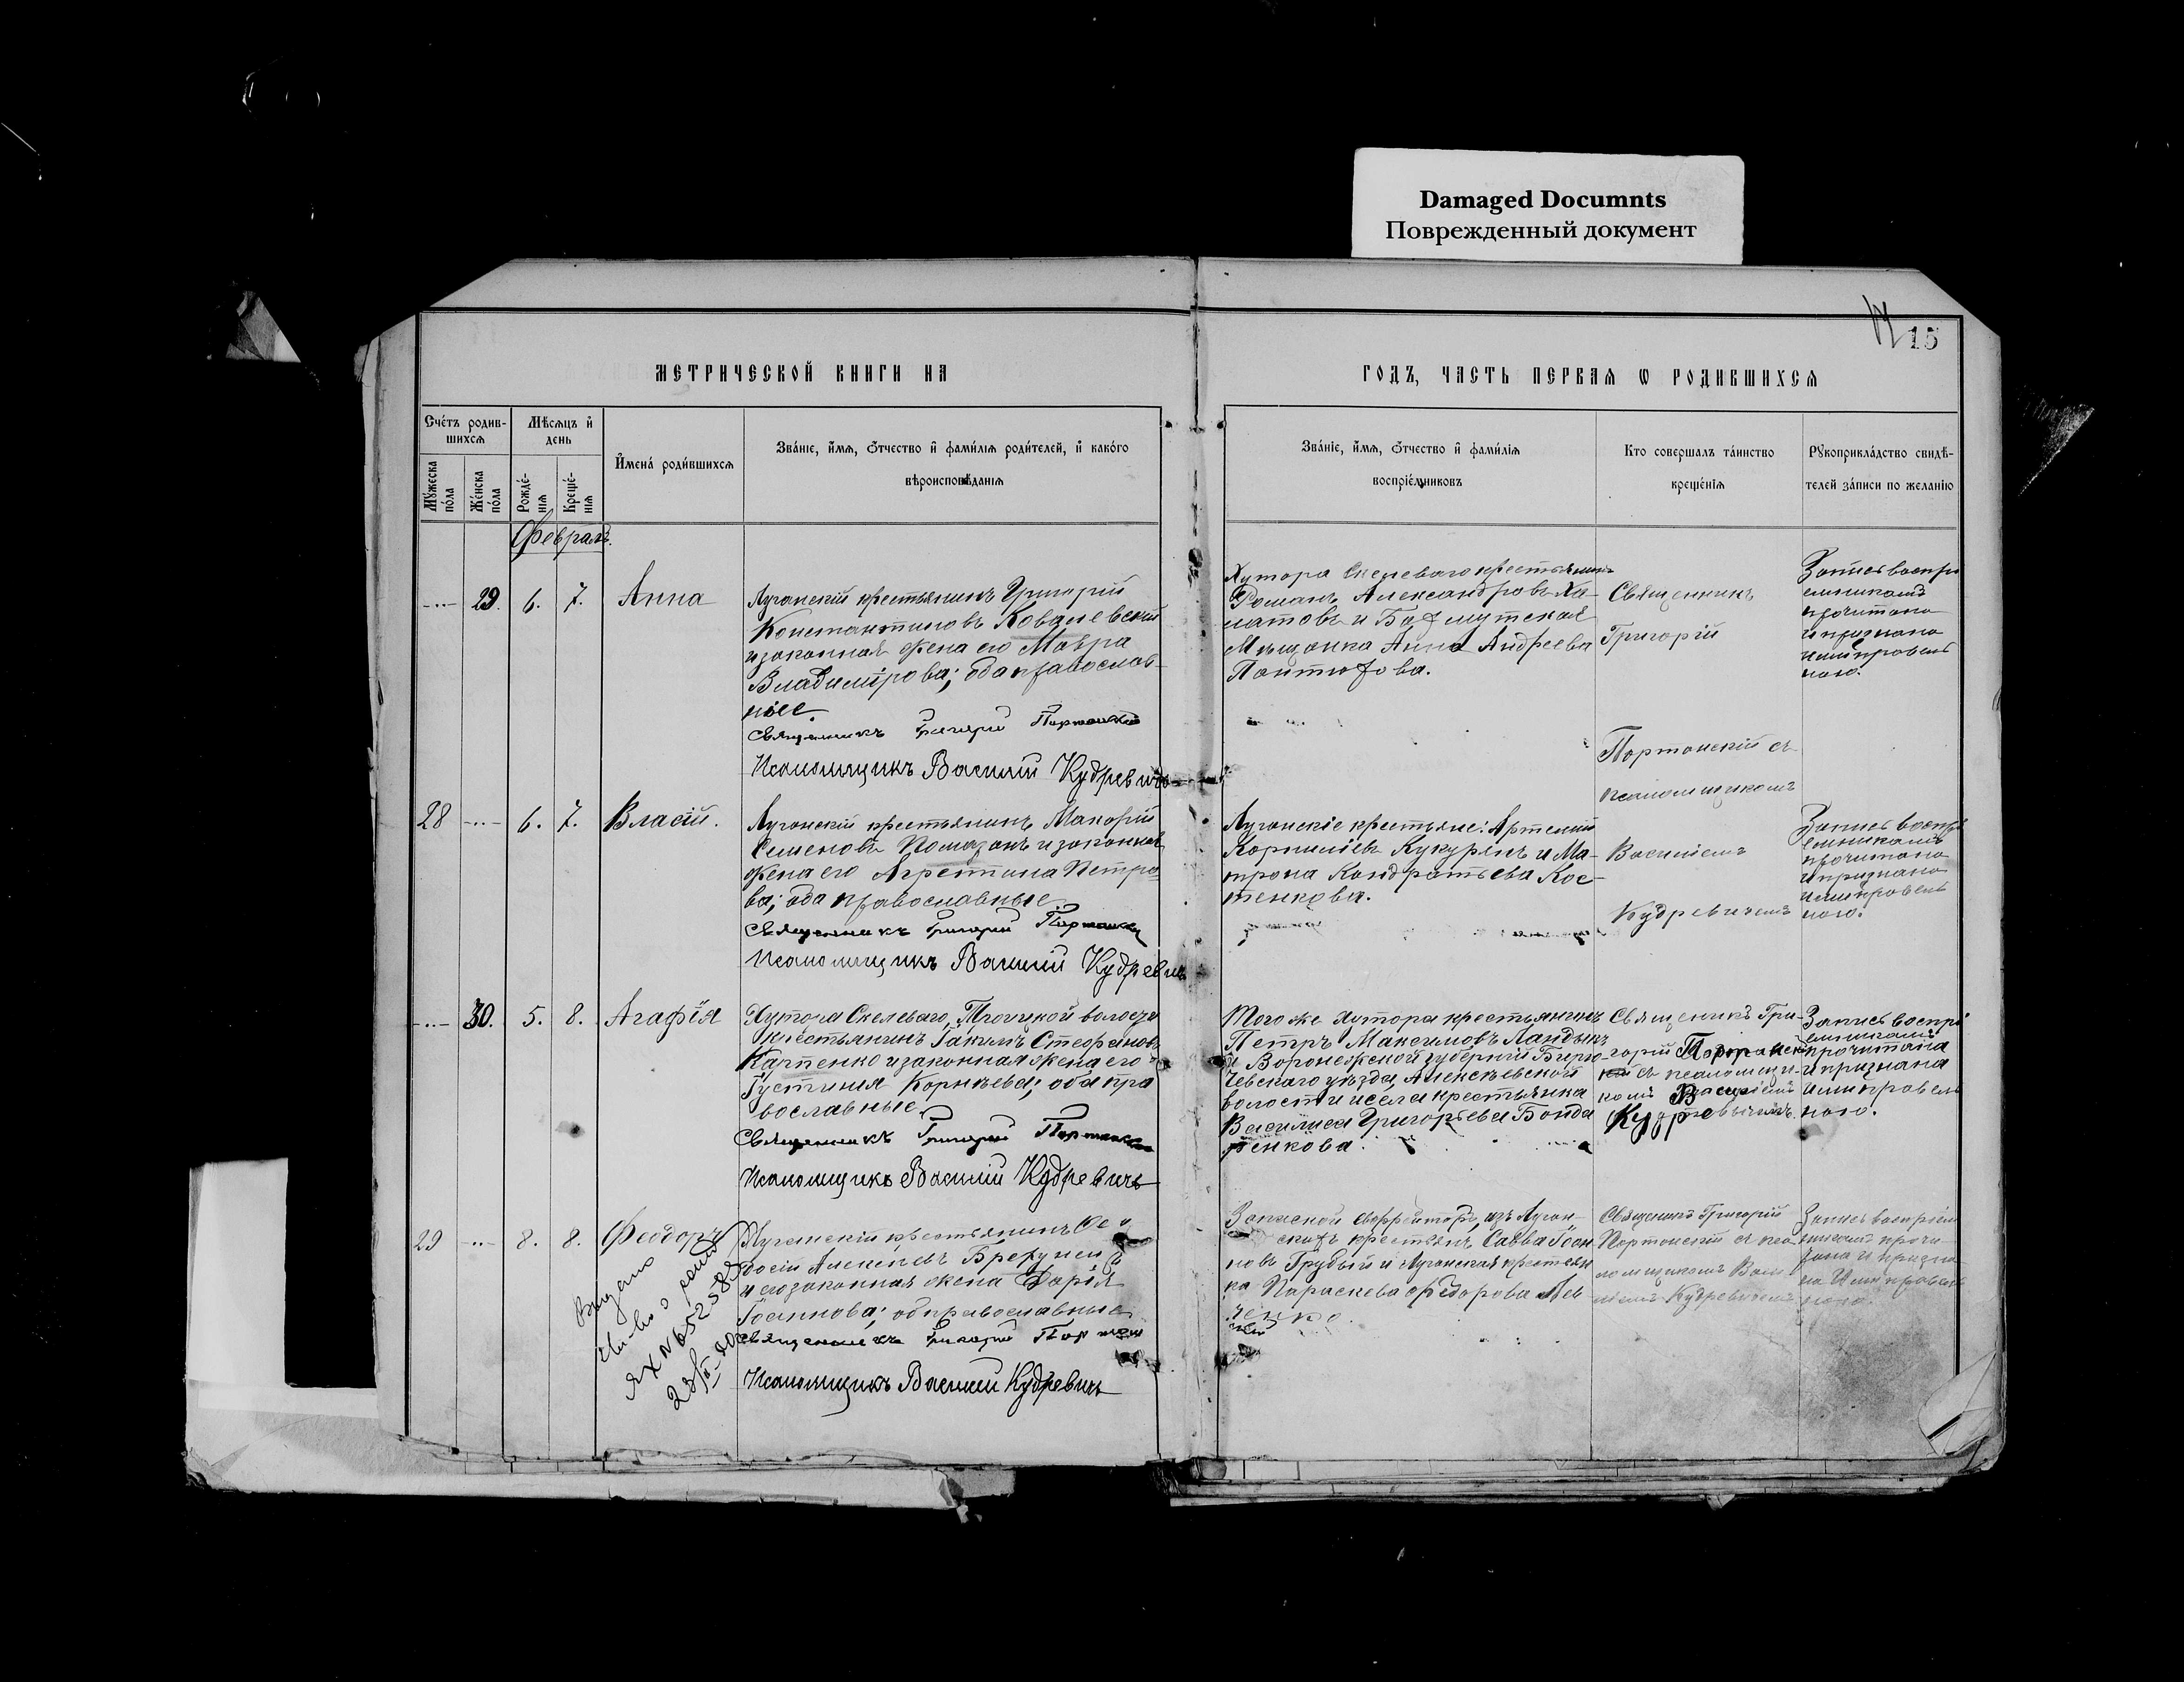 Damaged Documnts
Поврежденный документ
15
МЕТРИЧЕСКОЙ КНИГИ НА
ГОДЪ, ЧАСТЬ ПЕРВАѦ Ѡ РОДИВШИХСѦ
Сче́тъ родив-
шихсѧ
Мꙋ́жеска по́ла
Же́нска по́ла
Мѣсѧцъ и҆ день
Рожде́-
нїѧ
Креще́-
нїѧ
И҆мена̀ роди́вшихсѧ
Зва́нїе, и҆́мѧ, ѻ҆́тчество и҆ фами́лїѧ роди́телей, и҆ како́гѡ
вѣроисповѣ́данїѧ
Зва́нїе, и҆́мѧ, ѻ҆́тчество и҆ фами́лїѧ
воспрїе́мниковъ
Кто совершалъ та́инство
креще́нїѧ
Рꙋкоприкла́дство свидѣ́-
телей за́писи по жела́нїю
Февраль.
29. 6. 7. Анна
Луганскій крестьянинъ Григорій
Константиновъ Ковалевскій
и законная жена его Мавра
Владимірова; оба православ-
ные.
Священникъ Григорій Портанскій
Псаломщикъ Василій Кудревичъ
Хутора Скелеваго крестьянинъ
Романъ Александровъ Ха-
латовъ и Бахмутская
Мѣщанка Анна Андреева
Пантюхова.
Священникъ
Григорій
Портанскій съ
псаломщикомъ
Запись воспрі
емникамъ
прочитана
и признана
ими правиль
ною.
28 6. 7. Власій.
Луганскій крестьянинъ Макарій
Семеновъ Помазанъ и законная
жена его Агрепина Петро-
ва; оба православные
Священникъ Григорій Портанскій
Псаломщикъ Василій Кудревичъ
Луганскіе крестьяне: Артемій
Корниліевъ Кукуринъ и Ма-
трона Кондратьева Кос-
тенкова.
Василіемъ
Кудревичемъ
Запись воспрі
емникамъ
прочитана
и признана
ими правиль
ною.
30. 5. 8. Агафія
Хутора Скелеваго, Троицкой волости
крестьянинъ Іакимъ Стефановъ
Карпенко и законная жена его
Іустинія Корнѣева; оба пра
вославные.
Священникъ Григорій Портанскій
Псаломщикъ Василій Кудревичъ
Того же хутора крестьянинъ
Петръ Максимовъ Ландыкъ
и Воронежской губерніи Бирю-
чевскаго уѣзда, Алексѣевской
волости и села крестьянка
Василиса Григорьева Бонда
ренкова.
Священникъ Гри-
горій Портанск
кій съ псаломщи-
комъ Василіемъ
Кудревичемъ.
Запись воспрі
емниками
прочитана
и признана
ими правиль
ною.
29 8. 8. Феодоръ
Выдано
св-во о рожд
ЯХ N 652583
Луганскій крестьянинъ Ѳе
досій Алексѣевъ Брехунец
и его законная жена Дарія
Іоаннова; об православные
Священникъ Григорій Портанск
Псаломщикъ Василій Кудревичъ
Запасной ефрейторъ, изъ Луган-
скихъ крестьянъ, Савва Іоан
новъ Грубый и Луганская крестьян
ка Параскева Федорова Лев
ченко.
Священникъ Григорій
Портанскій съ пса
ломщикомъ Васи
ліемъ Кудревичемъ
Запись воспріем
никами прочи
тана и призна
на ими правиль
ною.